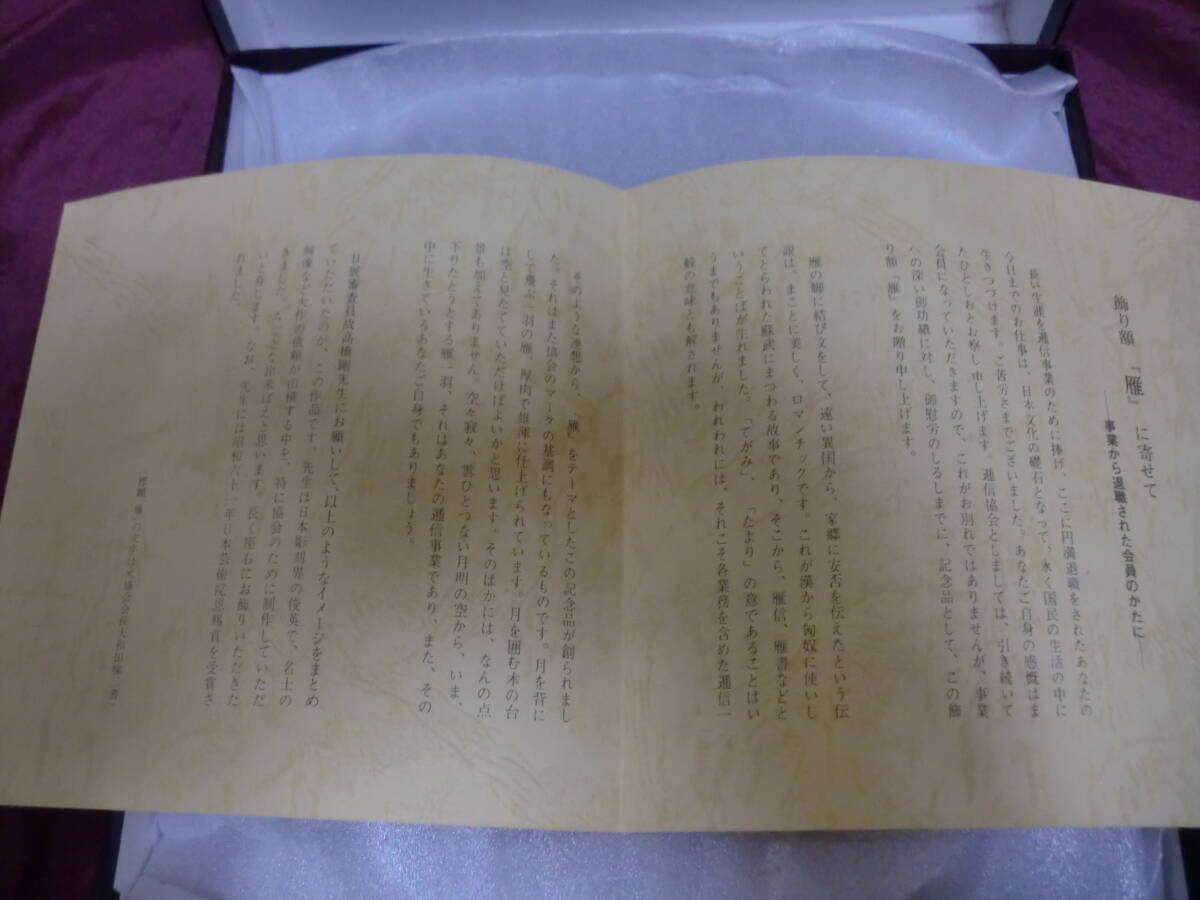 飾り額 『雁』 に寄せて
――事業から退職された会員のかたに――
長い生涯を通信事業のために捧げ、ここに円満退職をされたあなたの
今日までのお仕事は、日本文化の礎石となって、永く国民の生活の中に
生きつづけます。ご苦労さまでございました。あなたご自身の感慨はま
たひとしおとお察し申し上げます。逓信協会としましては、引き続いて
会員になっていただきますので、これがお別れではありませんが、事業
への深い御功績に対し、御慰労のしるしまでに、記念品として、この飾
り額『雁』をお贈り申し上げます。
雁の脚に結び文をして、遠い異国から、家郷に安否を伝えたという伝
説は、まことに美しく、ロマンチックです。これが漢から匈奴に使いし
てとらわれた蘇武にまつわる故事であり、そこから、雁信、雁書などと
いうことばが生れました。「てがみ」、「たより」の意であることはい
うまでもありませんが、われわれには、それこそ各業務を含めた逓信一
般の意味とも解されます。
そのような連想から、『雁』をテーマとしたこの記念品が創られまし
た。それはまた協会のマークの基調にもなっているものです。月を背に
して飛ぶ一羽の雁、厚肉で雄渾に仕上げられています。月を囲む木の台
は空と見たてていただけばよいかと思います。そのほかには、なんの点
景も加えてありません。空々寂々、雲ひとつない月明の空から、いま、
下りたとうとする雁一羽、それはあなたの通信事業であり、また、その
中に生きているあなたご自身でもありましょう。
日展審査員故高橋剛先生にお願いして、以上のようなイメージをまとめ
ていただいたのが、この作品です。先生は日本彫刻界の俊英で、名士の
胸像など大作の依頼が山積する中を、特に協会のために制作していただ
きました。みごとな出来ばえと思います。長く座右にお飾りいただきた
いと存じます。なお、先生には昭和六十一年日本芸術院恩賜賞を受賞さ
れました。
の文字は元協会会長大和田悌二書